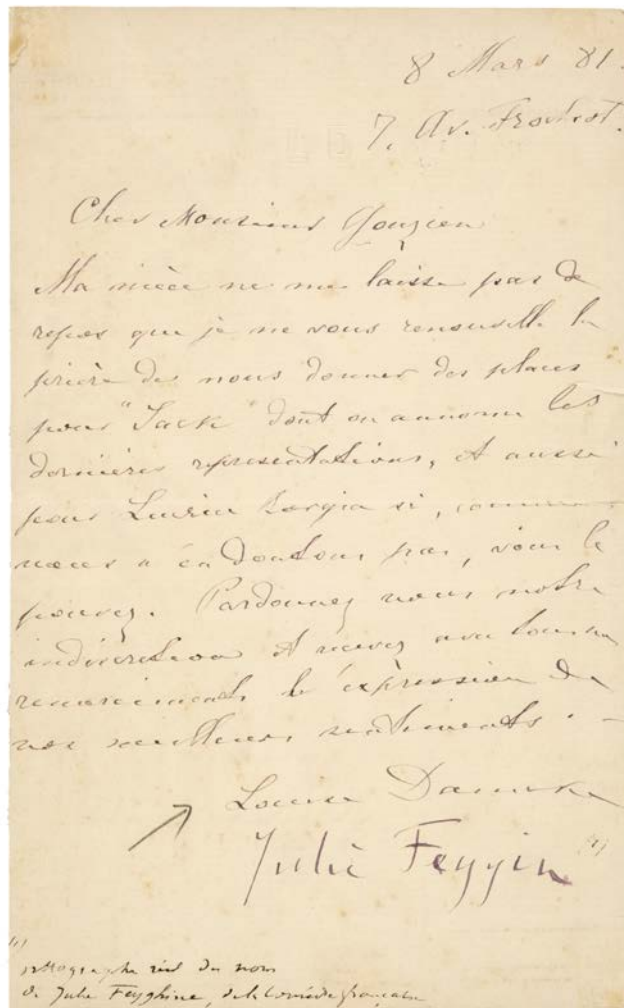 8 Mars 81.
7, Av. Frochot.
Cher Monsieur Gouzien
Ma nièce ne me laisse pas de
repos que je ne vous renouvelle la
prière de nous donner des places
pour "Jack" dont on annonce les
dernières représentations, et aussi
pour Lucrèce Borgia si, comme
nous n'en doutons pas, vous le
pouvez. Pardonnez nous notre
indiscrétion et recevez avec tous nos
remerciements l'expression de
nos meilleurs sentiments. –
Louise
Julie Feyghin (1)
(1)
orthographe réel du nom
de Julie Feyghine, de la Comédie française